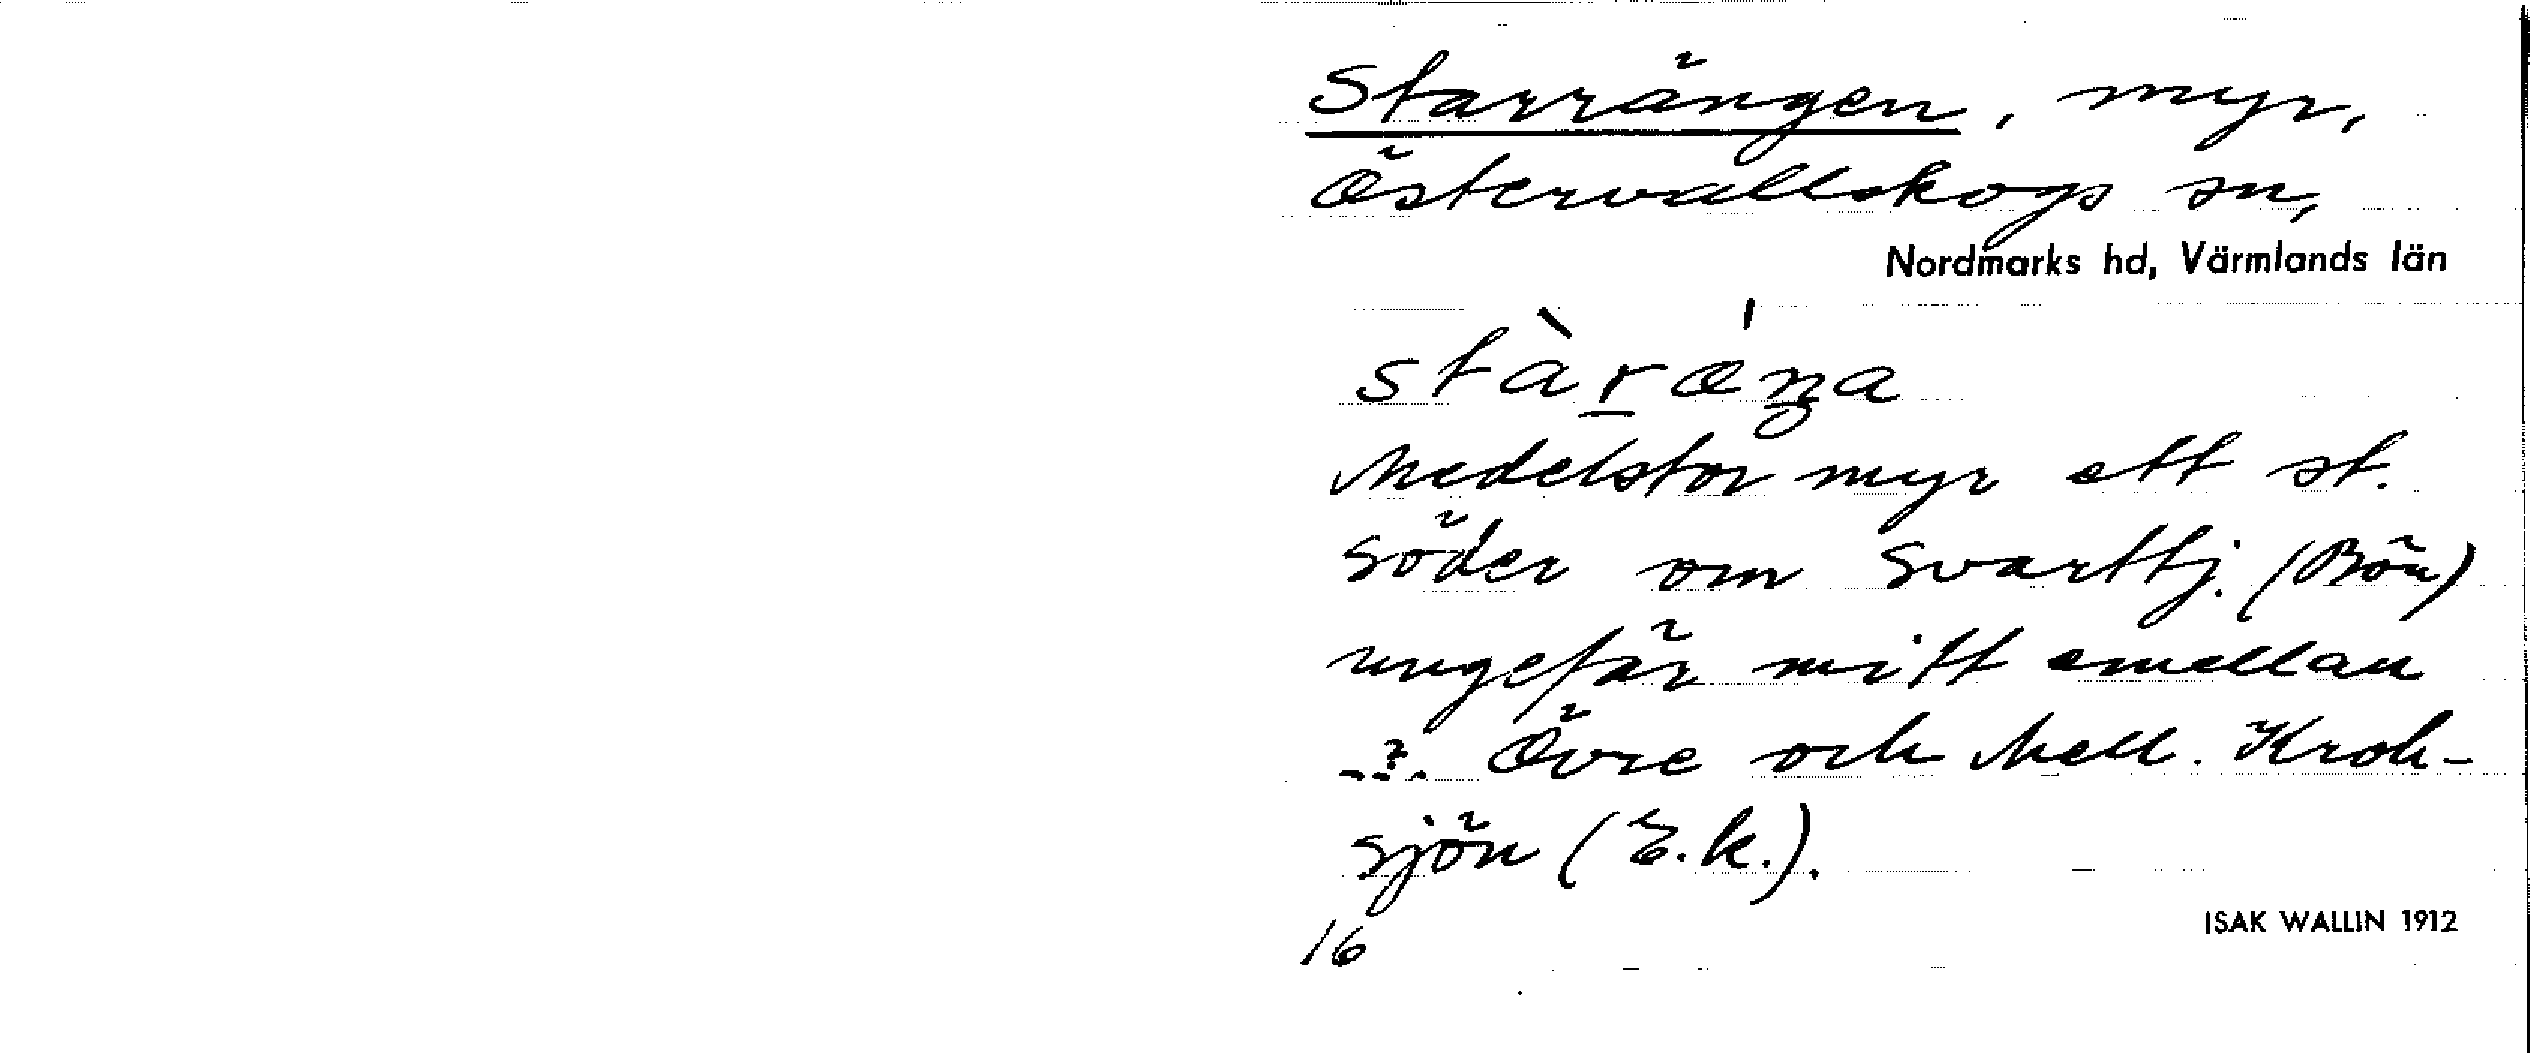 Starrängen, myr,
Östervallskogs sn,
Nordmarks hd, Värmlands län
Medelstor myr ett st.
söder om Svarttj. (Bön)
ungefär mitt emellan
..?. Övre och Mell. Krok-
sjön (E.k.).
16
ISAK WALLIN 1912